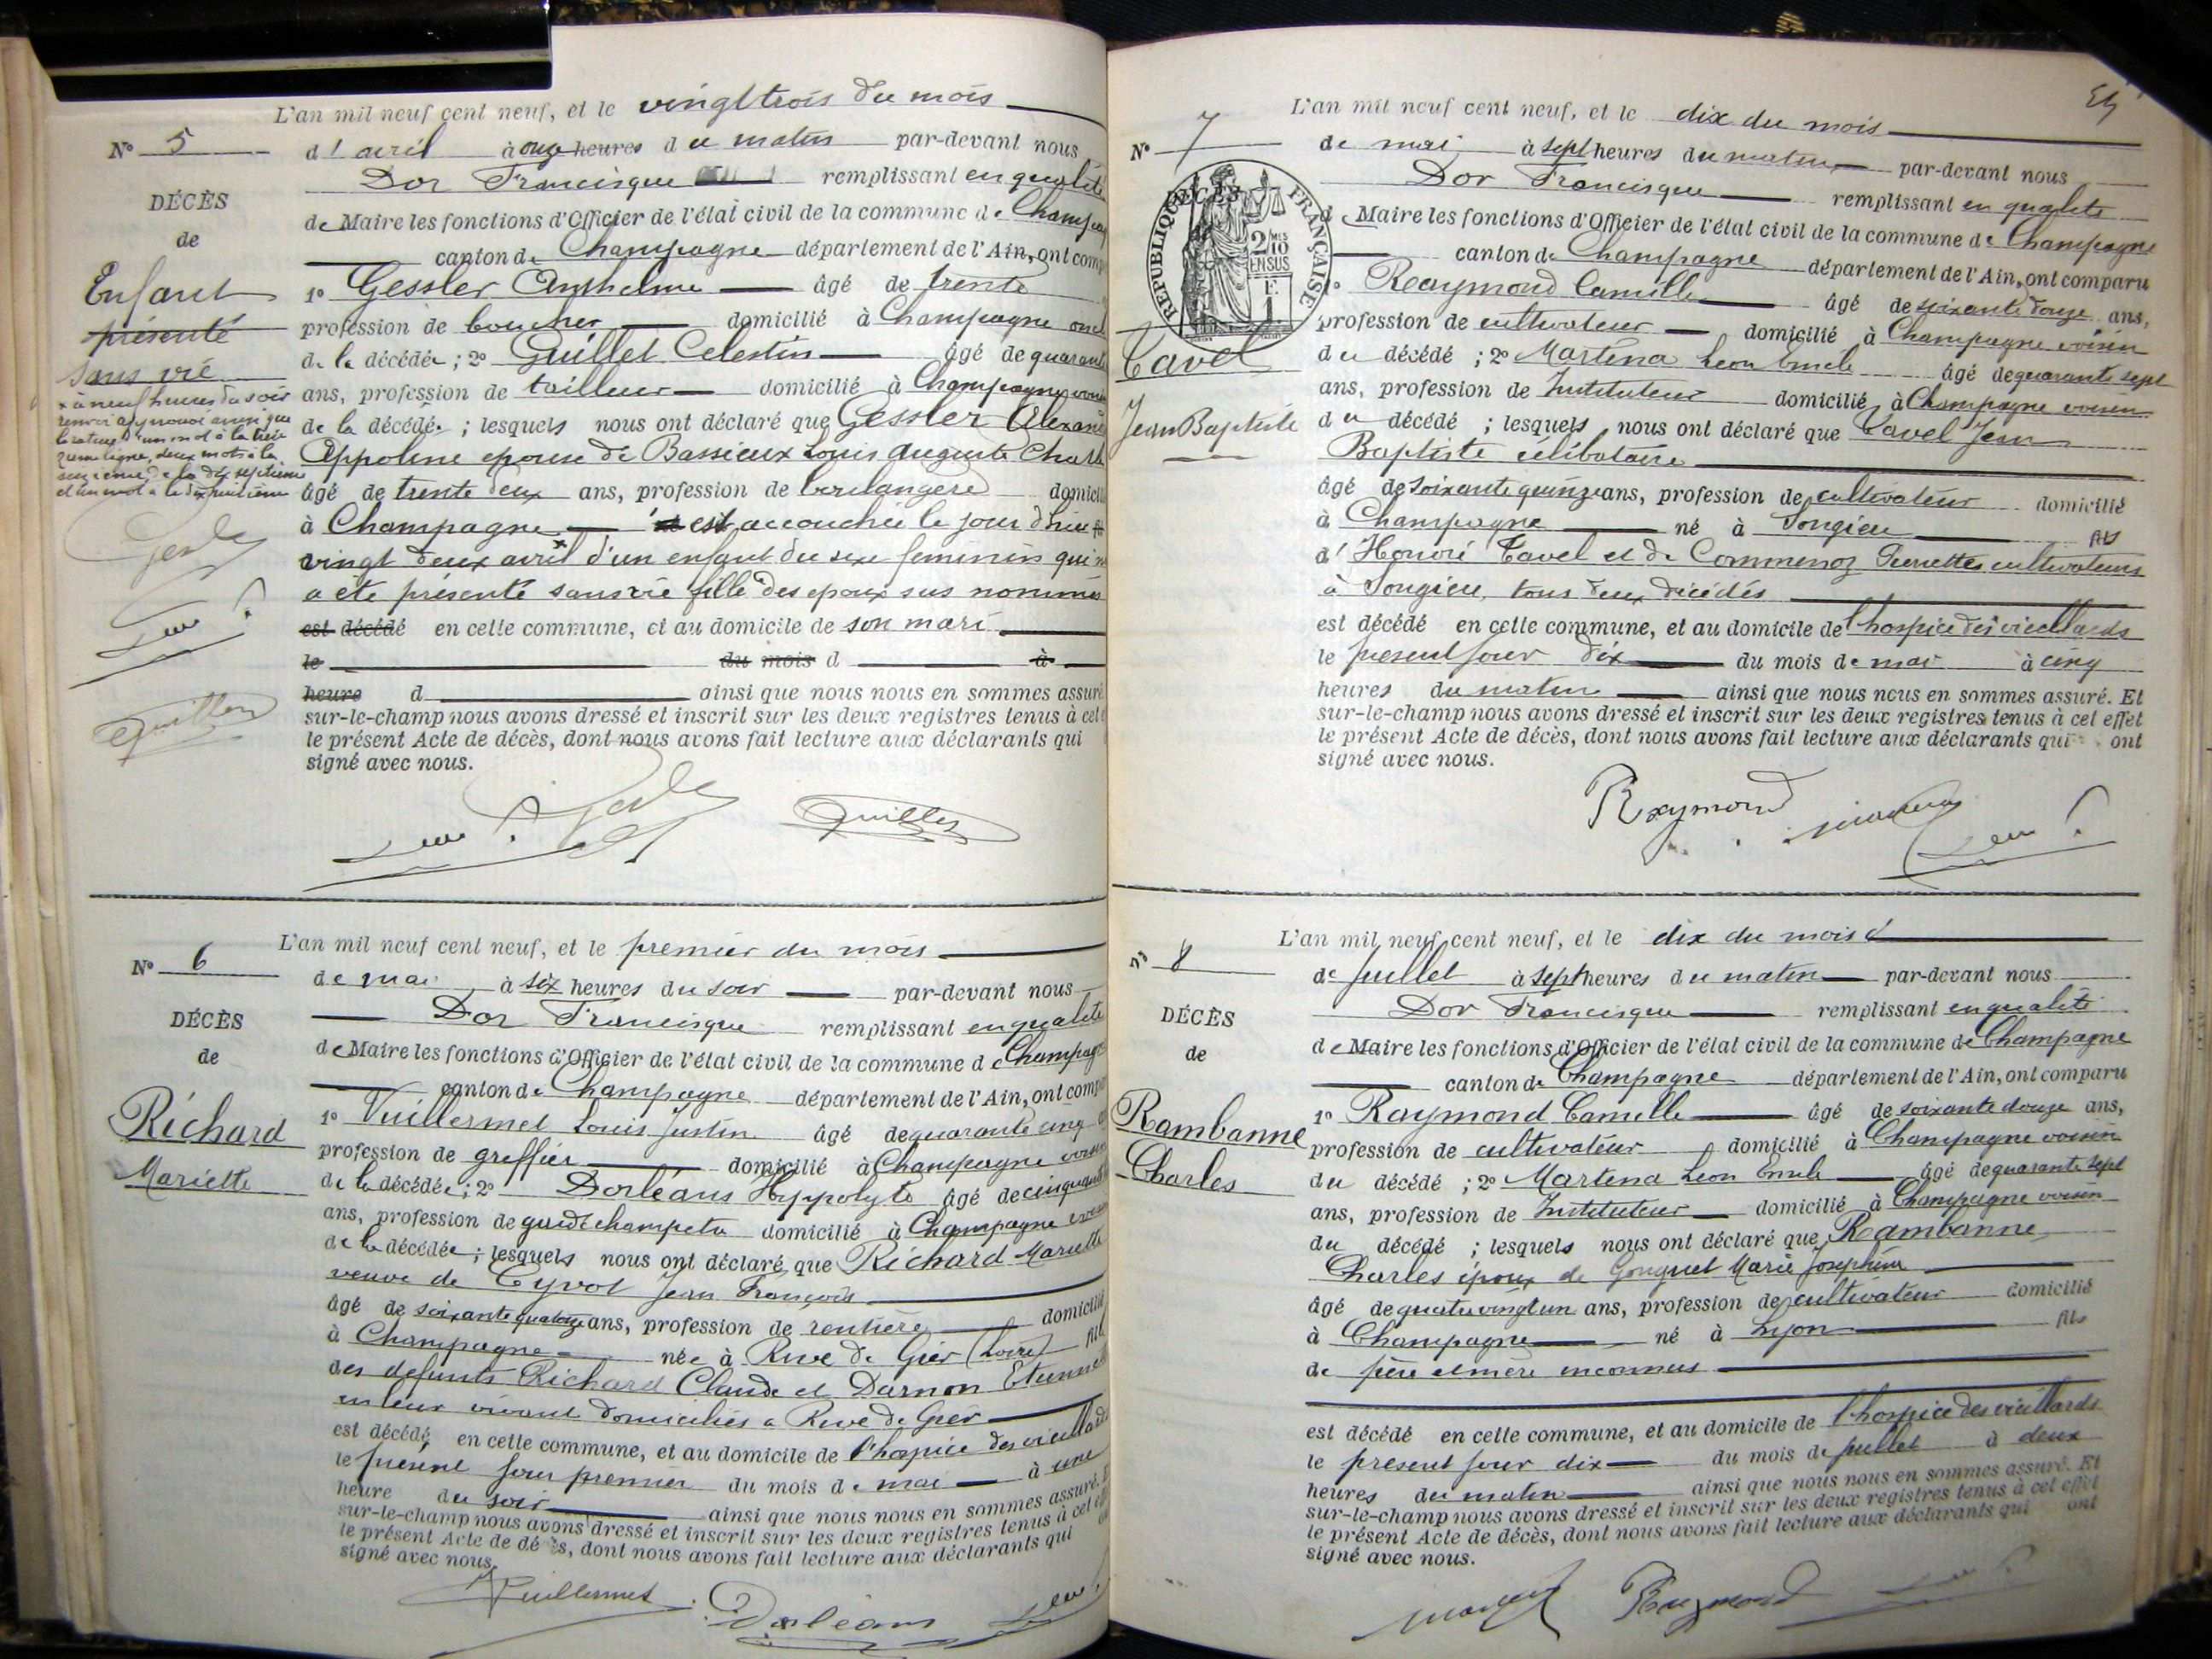 L'an mil neuf cent neuf, et le vingt trois du mois
N° 5
d'avril à onze heures du matin par-devant nous
Dor Francisque remplissant en qualité
DÉCÈS
de Maire les fonctions d'Officier de l'état civil de la commune de
de
canton de Champagne département de l'Ain, ont
Enfant
1° Gessler Anthelme âgé de trente
présenté
profession de boucher domicilié à Champagne oncle
sans vie
de la décédée ; 2° Guillet Celestin âgé de quarante
ans, profession de tailleur domicilié à Champagne voisin
× à neuf heures du soir
renvoi approuvé ainsi que
la rature d'un mot à la
ligne, deux mots à la
de la dix septième
et un mot à la dix huitième
de la décédée ; lesquels nous ont déclaré que Gessler
Appoline epouse de Bassieux Louis Auguste
âgé de trente deux ans, profession de boulangère
à Champagne est accouchée le jour d'hier
vingt deux avril × d'un enfant du sexe feminin qui
a été présenté sans vie fille des epoux sus nommés
est décédé en cette commune, et au domicile de son mari
le du mois d à
heure d ainsi que nous nous en sommes assuré
sur-le-champ nous avons dressé et inscrit sur les deux registres tenus à cet
le présent Acte de décès, dont nous avons fait lecture aux déclarants qui
signé avec nous.
Guillet
L'an mil neuf cent neuf, et le premier du mois
N° 6
de mai à six heures du soir par-devant nous
Dor Francisque remplissant en qualité
DÉCÈS
de Maire les fonctions d'Officier de l'état civil de la commune de Champagne
de
canton de Champagne département de l'Ain, ont
Richard
1° Vuillermet Louis Justin âgé de quarante cinq
profession de greffier domicilié à Champagne voisin
Mariette
de la décédée ; 2° Dorléans Hyppolyte âgé de cinquante
ans, profession de garde champetre domicilié à Champagne
de la décédée ; lesquels nous ont déclaré que Richard Mariette
veuve de Cyvot Jean François
âgé de soixante quatorze ans, profession de rentière domicilié
à Champagne née à Rive de Gier (Loire)
des defunts Richard Claude et Darnon
en leur vivant domiciliés a Rive de Gier
est décédé en cette commune, et au domicile de l'hospice des vieillards
le présent jour premier du mois de mai à une
heure du soir ainsi que nous nous en sommes assuré.
sur-le-champ nous avons dressé et inscrit sur les deux registres tenus à cet
le présent Acte de décès, dont nous avons fait lecture aux déclarants qui
signé avec nous.
Vuillermet Dorléans
L'an mil neuf cent neuf, et le dix du mois
N° 7
de mai à sept heures du matin par-devant nous
Dor Francisque remplissant en qualité
RÉPUBLIQUE FRANÇAISE
2/10 EN SUS
DÉCÈS
de Maire les fonctions d'Officier de l'état civil de la commune de Champagne
canton de Champagne département de l'Ain, ont comparu
1° Raymond Camille âgé de soixante douze ans,
profession de cultivateur domicilié à Champagne voisin
Cavel
du décédé ; 2° Martena Leon Emile âgé de quarante sept
ans, profession de Instituteur domicilié à Champagne voisin
Jean Baptiste
du décédé ; lesquels nous ont déclaré que Cavel Jean
Baptiste célibataire
âgé de soixante quinze ans, profession de cultivateur domicilié
à Champagne né à Songieu fils
d'Honoré Cavel et de Pierrette cultivateurs
à Songieu, tous deux décédés
est décédé en cette commune, et au domicile de l'hospice des vieillards
le present jour dix du mois de mai à cinq
heures du matin ainsi que nous nous en sommes assuré. Et
sur-le-champ nous avons dressé et inscrit sur les deux registres tenus à cet effet
le présent Acte de décès, dont nous avons fait lecture aux déclarants qui ont
signé avec nous.
Raymond
L'an mil neuf cent neuf, et le dix du mois
N° 8
de juillet à sept heures du matin par-devant nous
Dor Francisque remplissant en qualité
DÉCÈS
de Maire les fonctions d'Officier de l'état civil de la commune de Champagne
de
canton de Champagne département de l'Ain, ont comparu
Rambanne
1° Raymond Camille âgé de soixante douze ans,
profession de cultivateur domicilié à Champagne voisin
Charles
du décédé ; 2° Martena Leon Emile âgé de quarante sept
ans, profession de Instituteur domicilié à Champagne voisin
du décédé ; lesquels nous ont déclaré que Rambanne
Charles époux de Gonguet Marie Josephine
âgé de quatre vingt un ans, profession de cultivateur domicilié
à Champagne né à Lyon fils
de père et mère inconnus
est décédé en cette commune, et au domicile de l'hospice des vieillards
le present jour dix du mois de juillet à deux
heures du matin ainsi que nous nous en sommes assuré. Et
sur-le-champ nous avons dressé et inscrit sur les deux registres tenus à cet effet
le présent Acte de décès, dont nous avons fait lecture aux déclarants qui ont
signé avec nous.
Raymond